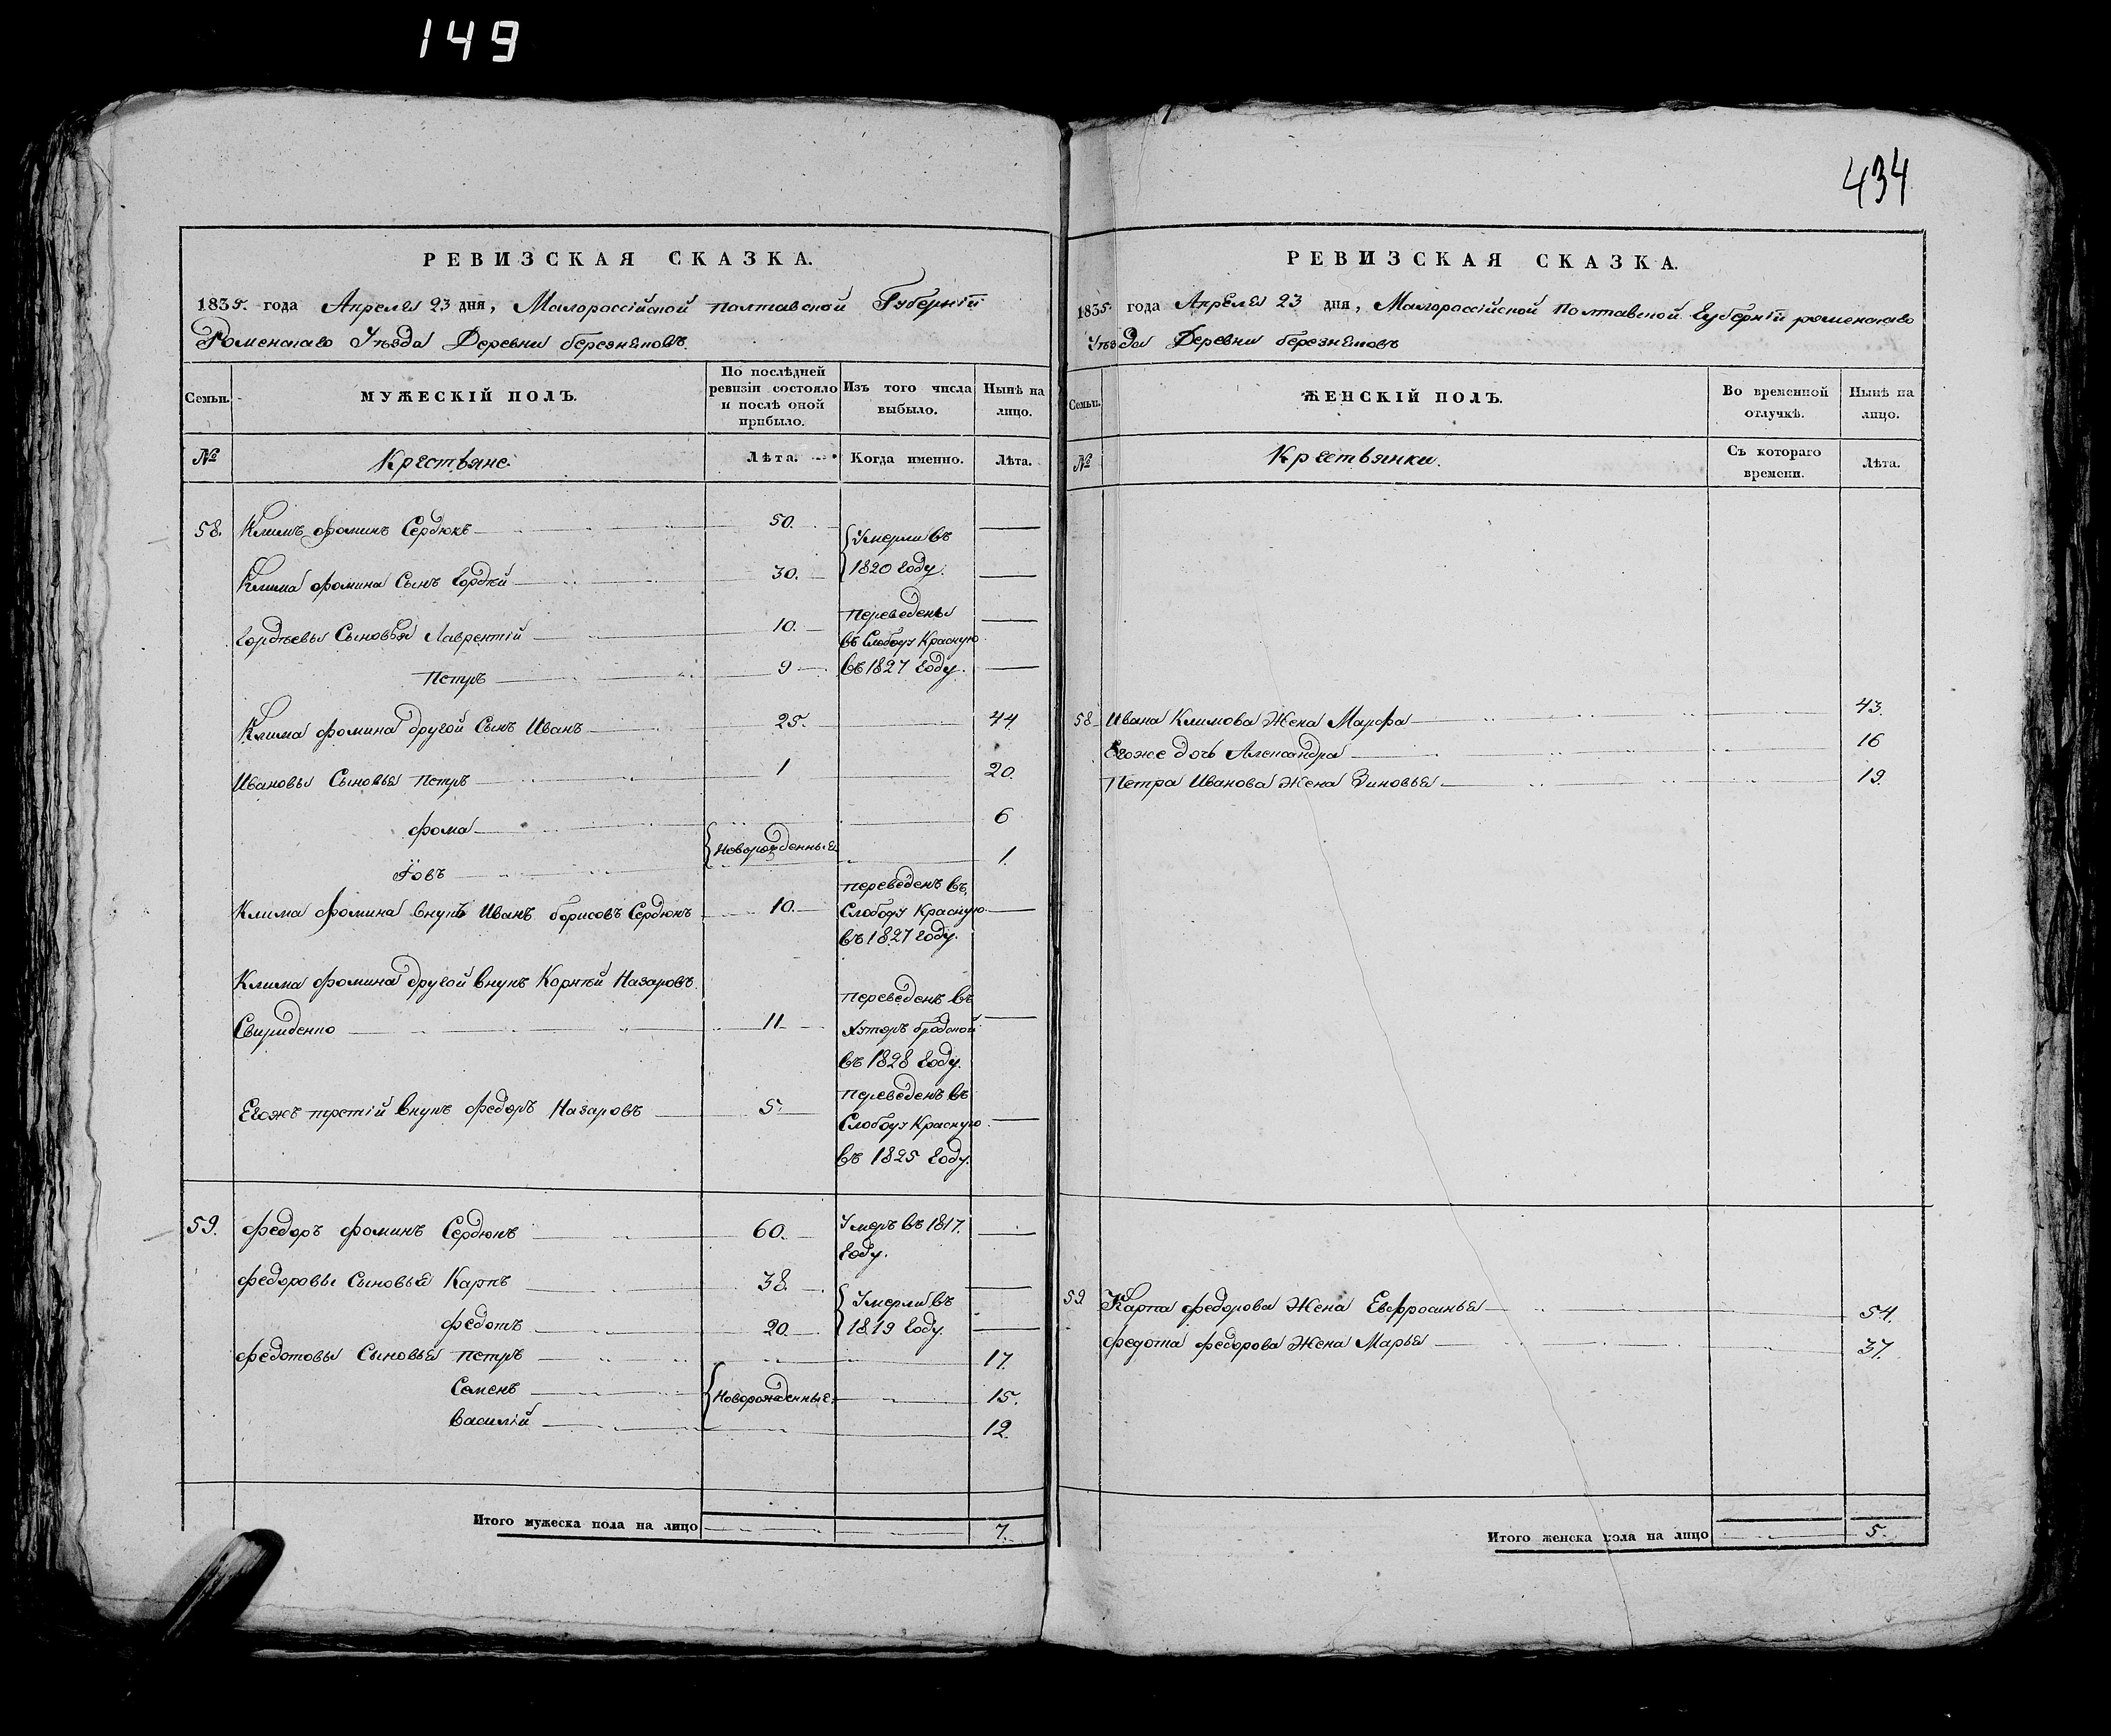 149
434
РЕВИЗСКАЯ СКАЗКА.
1835. года Апреля 23 дня, Малороссійской полтавской Губерніи
Роменскаго Уѣзда Деревни березняковъ.
Семьи.
МУЖЕСКІЙ ПОЛЪ.
По послѣдней
ревизіи состояло
и послѣ оной
прибыло.
Изъ того числа
выбыло.
Нынѣ на
лицо.
№
Крестьяне.
Лѣта.
Когда именно.
Лѣта.
58. Климъ Фоминъ Сердюкъ 50.
Умерли въ
1820 году.
Клима Фомина Сынъ Гордѣй 30.
Гордѣевы Сыновья Лаврентій 10.
Переведены
въ Слободу Красную
въ 1827 году.
Петръ 9
Клима Фомина другой Сынъ Иванъ 25. 44
Ивановы Сыновья Петръ 1 20.
Фома 6
Новорожденные
Іовъ 1.
Клима Фомина внукъ Иванъ борисовъ Сердюкъ 10.
переведенъ въ
Слободу Красную
въ 1827 году.
Клима Фомина другой внукъ Корнѣй Назаровъ
Свириденко 11
переведенъ въ
Хуторъ бродской
въ 1828 году.
Егожъ третій внукъ Федоръ Назаровъ 5.
переведенъ въ
Слободу Красную
въ 1825 году.
59. Федоръ Фоминъ Сердюкъ 60.
Умеръ въ 1817.
году.
Федоровы Сыновья Карпъ 38.
Умерли въ
1819 году.
Федотъ 20.
Федотовы Сыновья Петръ 17.
Семенъ Новорожденные. 15.
Василій 12.
Итого мужеска пола на лицо 7.
РЕВИЗСКАЯ СКАЗКА.
1835. года Апреля 23 дня, Малороссійской Полтавской Губерніи роменскаго
Уѣзда Деревни березняковъ
Семьи.
ЖЕНСКІЙ ПОЛЪ.
Во временной
отлучкѣ.
Нынѣ на
лицо.
№
Крестьянки.
Съ котораго
времени.
Лѣта.
58 Ивана Климова Жена Марфа 43.
Егоже дочь Александра 16
Петра Иванова Жена Зиновья 19.
59. Карпа Федорова Жена Евфросинья 54.
Федота Федорова Жена Марья 37.
Итого женска пола на лицо 5.